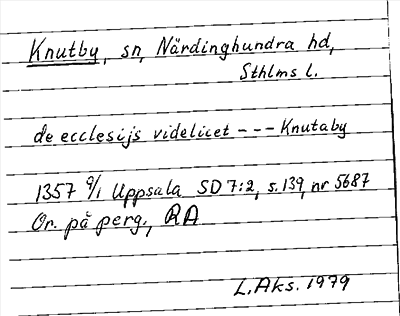 Knutby, sn, Närdinghundra hd,
Sthlms l.
de ecclesijs videlicet --- Knutaby
1357 9/1 Uppsala SD 7:2, s. 139, nr 5687
Or. på perg., RA
L. Aks. 1979